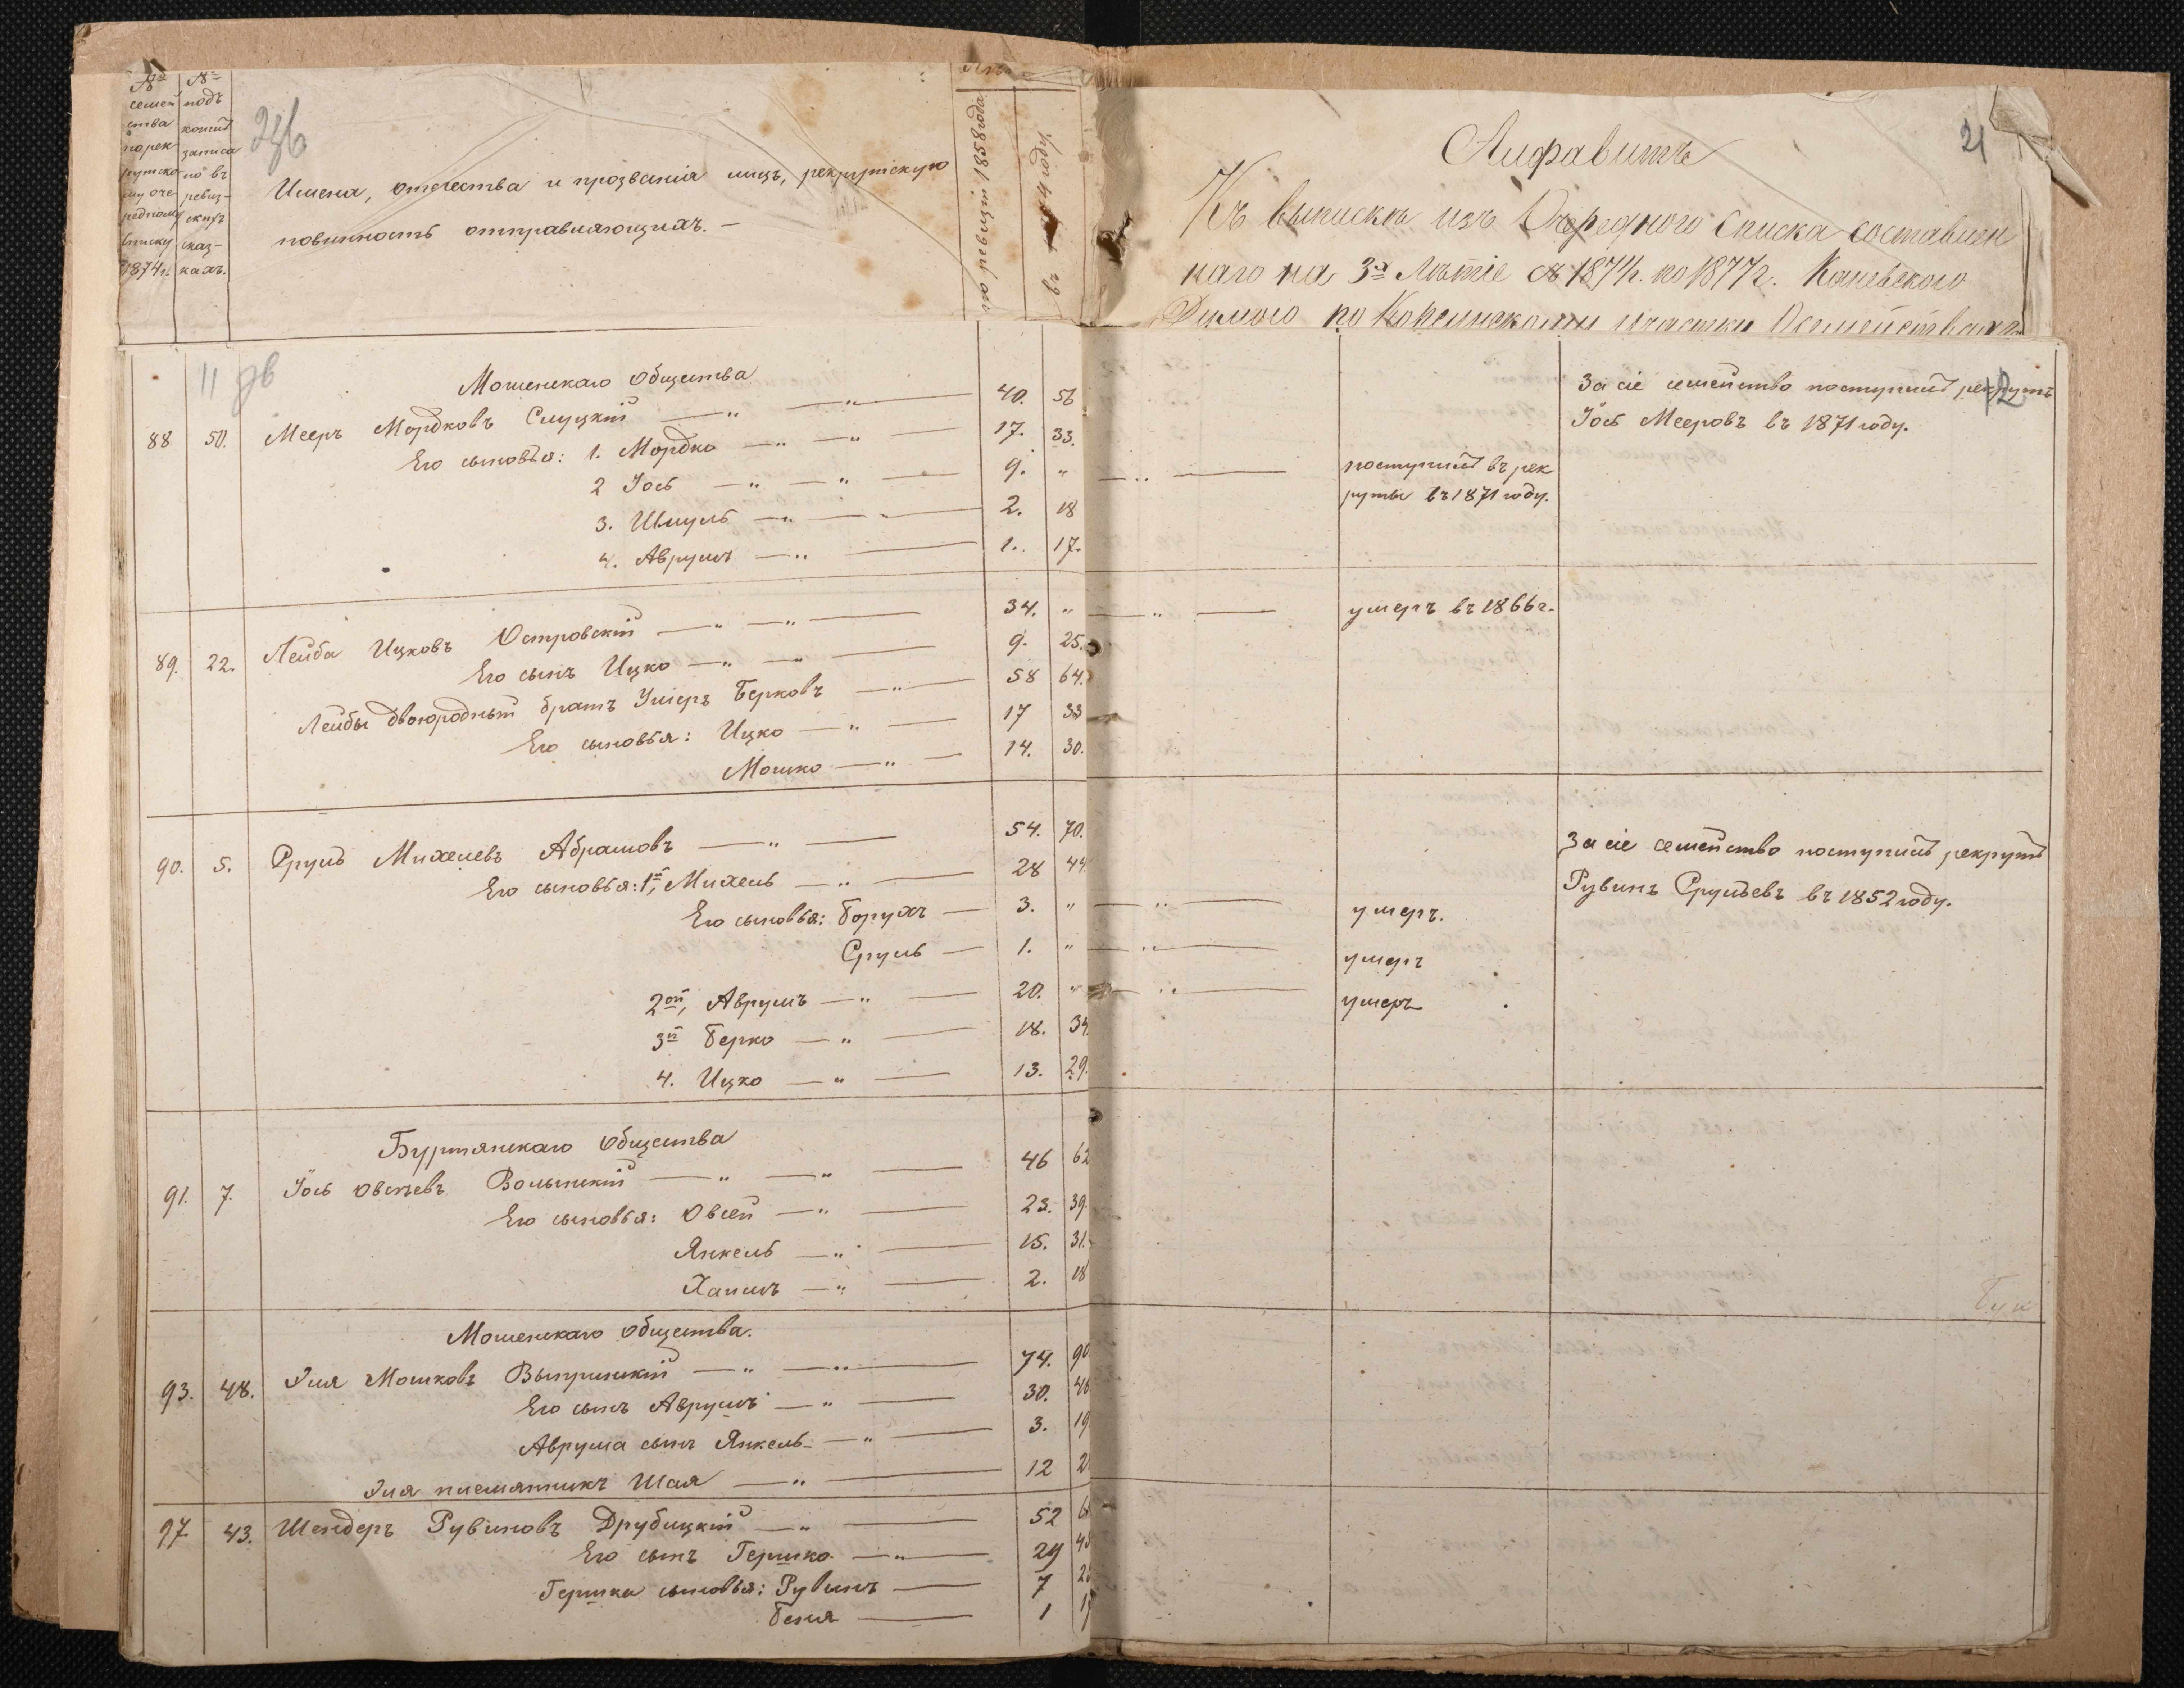 №
семей
ства
по рек
рутско
му оче
редному
списку
1874 г.
№
подъ
коимъ
записа
но въ
ревиз-
скихъ
сказ-
кахъ.
Имена, отечества и прозванія лицъ, рекрутскую
повинность отправляющихъ. —
по ревизіи 1858 года
въ 1874 году.
Алфавитъ
21
Къ выпискѣ изъ Очереднаго Списка составлен
наго на 3х Лѣтіе съ 1874 г. по 1877 г. Каневскаго
по Корсунскому участку
11
Мошенскаго Общества
88 50. Мееръ Мордковъ Слуцкій — „ — „ — 40. 56
Его сыновья: 1. Мордко — „ — „ — 17. 33.
2 Іось — „ — „ — 9. „ — „ — поступилъ въ рек
руты въ 1871 году.
3. Шмуль — „ — „ — 2. 18
4. Аврумъ — „ — 1. 17.
За сіе семейство поступилъ рекрутъ
Іось Мееровъ въ 1871 году.
89. 22. Лейба Ицковъ Островскій — „ — „ — 34. „ — „ — умеръ въ 1866 г.
Его сынъ Ицко — „ — „ — 9. 25.
Лейбы двоюродный братъ Умеръ Берковъ — „ — 58 64.
Его сыновья: Ицко — „ — 17 33
Мошко — „ — 14. 30.
90. 5. Сруль Михелевъ Абрамовъ — „ — 54. 70.
Его сыновья: 1й, Михель — „ — 28 44
Его сыновья: Борухъ — 3. „ — „ — умеръ.
Сруль — 1. „ — „ — умеръ
2ой, Аврумъ — „ — 20. „ — „ — умеръ
3й Берко — „ — 18. 34.
4. Ицко — „ — 13. 29.
За сіе семейство поступилъ рекрутъ
Рувинъ Срулевъ въ 1852 году.
Буртянскаго Общества
91. 7. Іось Овсѣевъ Волынскій — „ — „ — 46 62
Его сыновья: Овсей — „ — 23. 39.
Янкель — „ — 15. 31.
Хаимъ — „ — 2. 18
Мошенскаго Общества.
93. 48. Эля Мошковъ — „ — „ — 74. 90
Его сынъ Аврумъ — „ — 30. 46
Аврума сынъ Янкель — „ — 3. 19
Эля племянникъ Шая — „ — 12
97 43. Шендеръ Рувиновъ Друбицкій — „ — 52
Его сынъ Гершко — „ — 29
Гершка сыновья: Рувинъ — 7
Беня — 1